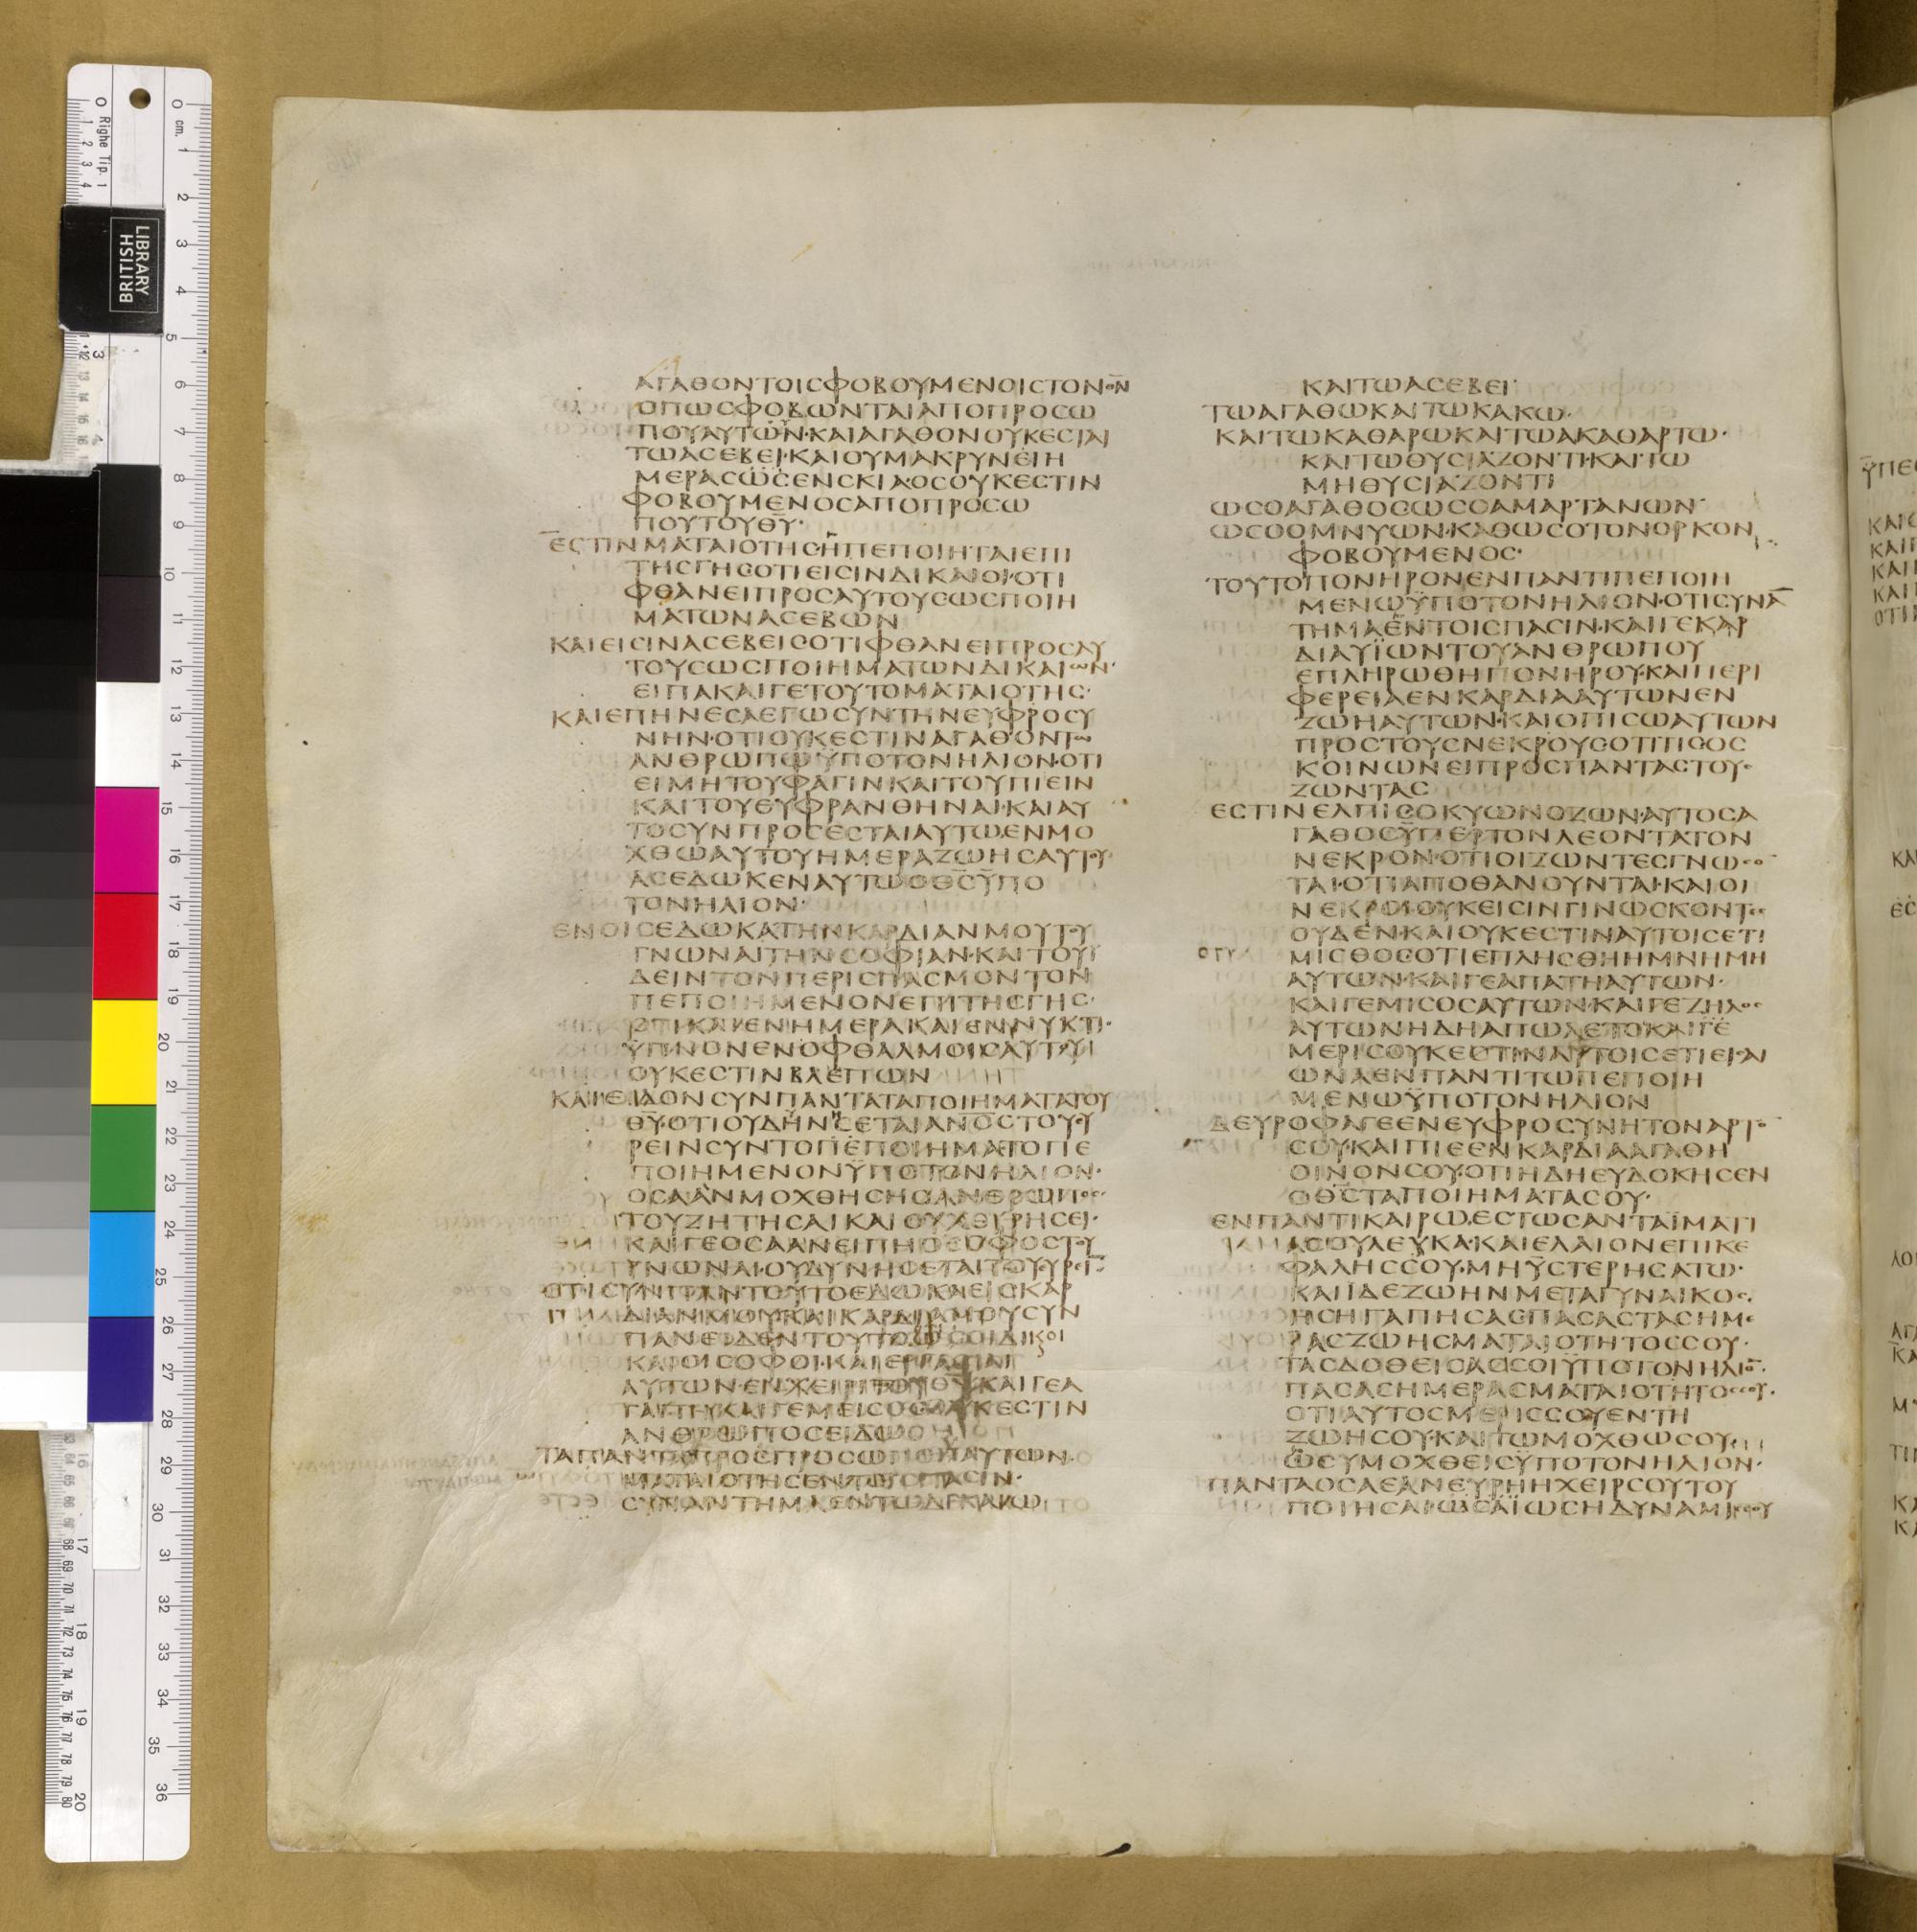 ΑΓΑΘΟΝΤΟΙCΦΟΒΟΥΜΕΝΟΙCΤΟΝΘΝ
ΟΠΩCΦΟΒΩΝΤΑΙΑΠΟΠΡΟCΩ
ΠΟΥΑΥΤΟΥ·ΚΑΙΑΓΑΘΟΝΟΥΚΕCΤΑΙ
ΤΩΑCΕΒΕΙ·ΚΑΙΟΥΜΑΚΡΥΝΕΙΗ
ΜΕΡΑCΩCΕΝCΚΙΑ·ΟCΟΥΚΕCΤΙΝ
ΦΟΒΟΥΜΕΝΟCΑΠΟΠΡΟCΩ
ΠΟΥΤΟΥΘΥ·
ΕCΤΙΝΜΑΤΑΙΟΤΗCΗΠΕΠΟΙΗΤΑΙΕΠΙ
ΤΗCΓΗCΟΤΙΕΙCΙΝΔΙΚΑΙΟΙ·ΟΤΙ
ΦΘΑΝΕΙΠΡΟCΑΥΤΟΥCΩCΠΟΙΗ
ΜΑΤΩΝΑCΕΒΩΝ
ΚΑΙΕΙCΙΝΑCΕΒΕΙCΟΤΙΦΘΑΝΕΙΠΡΟCΑΥ
ΤΟΥCΩCΠΟΙΗΜΑΤΩΝΔΙΚΑΙΩΝ·
ΕΙΠΑΚΑΙΓΕΤΟΥΤΟΜΑΤΑΙΟΤΗC·
ΚΑΙΕΠΗΝΕCΑΕΓΩCΥΝΤΗΝΕΥΦΡΟCΥ
ΝΗΝ·ΟΤΙΟΥΚΕCΤΙΝΑΓΑΘΟΝΤΩ
ΑΝΘΡΩΠΩΫΠΟΤΟΝΗΛΙΟΝ·ΟΤΙ
ΕΙΜΗΤΟΥΦΑΓΙΝΚΑΙΤΟΥΠΙΕΙΝ
ΚΑΙΤΟΥΕΥΦΡΑΝΘΗΝΑΙ·ΚΑΙΑΥ
ΤΟCΥΝΠΡΟCΕCΤΑΙΑΥΤΩ·ΕΝΜΟ
ΧΘΩΑΥΤΟΥΗΜΕΡΑΖΩΗCΑΥΤΟΥ·
ΑCΕΔΩΚΕΝΑΥΤΩΟΘCΫΠΟ
ΤΟΝΗΛΙΟΝ·
ΕΝΟΙCΕΔΩΚΑΤΗΝΚΑΡΔΙΑΝΜΟΥΤΟΥ
ΓΝΩΝΑΙΤΗΝCΟΦΙΑΝ·ΚΑΙΤΟΥΙ
ΔΕΙΝΤΟΝΠΕΡΙCΠΑCΜΟΝΤΟΝ
ΠΕΠΟΙΗΜΕΝΟΝΕΠΙΤΗCΓΗC·
ΟΤΙΚΑΙΕΝΗΜΕΡΑΚΑΙΕΝΝΥΚΤΙ·
ΫΠΝΟΝΕΝΟΦΘΑΛΜΟΙCΑΥΤΟΥ
ΟΥΚΕCΤΙΝΒΛΕΠΩΝ
ΚΑΙΕΙΔΟΝCΥΝΠΑΝΤΑΤΑΠΟΙΗΜΑΤΑΤΟΥ
ΘΥ·ΟΤΙΟΥΔΥΝΗCΕΤΑΙΑΝΟCΤΟΥΕΥ
ΡΕΙΝCΥΝΤΟΠΕΠΟΙΗΜΑΤΟΠΕ
ΠΟΙΗΜΕΝΟΝΫΠΟΤΟΝΗΛΙΟΝ·
ΟCΑΑΝΜΟΧΘΗCΗΟΑΝΘΡΩΠΟC
ΤΟΥΖΗΤΗCΑΙΚΑΙΟΥΧΕΥΡΗCΕΙ·
ΚΑΙΓΕΟCΑΑΝΕΙΠΗΟCΟΦΟCΤΟΥ
ΓΝΩΝΑΙ·ΟΥΔΥΝΗCΕΤΑΙΤΟΥΕΥΡΕΙ
ΟΤΙCΥΝΠΑΝΤΟΥΤΟΕΔΩΚΑΕΙCΚΑΡ
ΔΙΑΝΜΟΥΚΑΙΚΑΡΔΙΑΜΟΥCΥΝ
ΠΑΝΕΙΔΕΝΤΟΥΤΟΩCΟΙΔΙΚΟΙ
ΚΑΙΟΙCΟΦΟΙ·ΚΑΙΕΡΓΑCΙΑΙ
ΑΥΤΩΝ·ΕΝΧΕΙΡΙΤΟΥΘΥΚΑΙΓΕΑ
ΓΑΠΗΚΑΙΓΕΜΕΙCΟCΟΥΚΕCΤΙΝ
ΑΝΘΡΩΠΟCΕΙΔΩC
ΤΑΠΑΝΤΑΠΡΟCΠΡΟCΩΠΟΥΑΥΤΩΝ
ΜΑΤΑΙΟΤΗCΕΝΤΟΙCΠΑCΙΝ·
CΥΝΑΝΤΗΜΑΕΝΤΩΔΙΚΑΙΩ
ΚΑΙΤΩΑCΕΒΕΙ
ΤΩΑΓΑΘΩΚΑΙΤΩΚΑΚΩ·
ΚΑΙΤΩΚΑΘΑΡΩΚΑΙΤΩΑΚΑΘΑΡΤΩ·
ΚΑΙΤΩΘΥCΙΑΖΟΝΤΙ·ΚΑΙΤΩ
ΜΗΘΥCΙΑΖΟΝΤΙ
ΩCΟΑΓΑΘΟCΩCΟΑΜΑΡΤΑΝΩΝ
ΩCΟΟΜΝΥΩΝ·ΚΑΘΩCΟΤΟΝΟΡΚΟΝ
ΦΟΒΟΥΜΕΝΟC·
ΤΟΥΤΟΠΟΝΗΡΟΝΕΝΠΑΝΤΙΠΕΠΟΙΗ
ΜΕΝΩΫΠΟΤΟΝΗΛΙΟΝ·ΟΤΙCΥΝΑ
ΤΗΜΑΕΝΤΟΙCΠΑCΙΝ·ΚΑΙΓΕΚΑΡ
ΔΙΑΥΪΩΝΤΟΥΑΝΘΡΩΠΟΥ
ΕΠΛΗΡΩΘΗΠΟΝΗΡΟΥ·ΚΑΙΠΕΡΙ
ΦΕΡΕΙΑΕΝΚΑΡΔΙΑΑΥΤΩΝΕΝ
ΖΩΗΑΥΤΩΝ·ΚΑΙΟΠΙCΩΑΥΤΩΝ
ΠΡΟCΤΟΥCΝΕΚΡΟΥCΟΤΙΤΙCΟC
ΚΟΙΝΩΝΕΙΠΡΟCΠΑΝΤΑCΤΟΥC
ΖΩΝΤΑC
ΕCΤΙΝΕΛΠΙCΟΚΥΩΝΟΖΩΝ·ΑΥΤΟCΑ
ΓΑΘΟCΫΠΕΡΤΟΝΛΕΟΝΤΑΤΟΝ
ΝΕΚΡΟΝ·ΟΤΙΟΙΖΩΝΤΕCΓΝΩCΟ
ΤΑΙ·ΟΤΙΑΠΟΘΑΝΟΥΝΤΑΙ·ΚΑΙΟΙ
ΝΕΚΡΟΙΟΥΚΕΙCΙΝΓΙΝΩCΚΟΝΤΕC
ΟΥΔΕΝ·ΚΑΙΟΥΚΕCΤΙΝΑΥΤΟΙCΕΤΙ
ΜΙCΘΟCΟΤΙΕΠΛΗCΘΗΗΜΝΗΜΗ
ΑΥΤΩΝ·ΚΑΙΓΕΑΓΑΠΗΑΥΤΩΝ·
ΚΑΙΓΕΜΙCΟCΑΥΤΩΝ·ΚΑΙΓΕΖΗΛΟC
ΑΥΤΩΝΗΔΗΑΠΩΛΕΤΟΚΑΙΓΕ
ΜΕΡΙCΟΥΚΕCΤΙΝΑΥΤΟΙCΕΤΙΕΙCΑΙ
ΩΝΑΕΝΠΑΝΤΙΤΩΠΕΠΟΙΗ
ΜΕΝΩΫΠΟΤΟΝΗΛΙΟΝ
ΔΕΥΡΟΦΑΓΕΕΝΕΥΦΡΟCΥΝΗΤΟΝΑΡΤΟ
CΟΥ·ΚΑΙΠΙΕΕΝΚΑΡΔΙΑΑΓΑΘΗ
ΟΙΝΟΝCΟΥ·ΟΤΙΗΔΗΕΥΔΟΚΗCΕΝ
ΟΘCΤΑΠΟΙΗΜΑΤΑCΟΥ·
ΕΝΠΑΝΤΙΚΑΙΡΩ·ΕCΤΩCΑΝΤΑΪΜΑΤΙ
ΑCΟΥΛΕΥΚΑ·ΚΑΙΕΛΑΙΟΝΕΠΙΚΕ
ΦΑΛΗCCΟΥ·ΜΗΫCΤΕΡΗCΑΤΩ·
ΚΑΙΪΔΕΖΩΗΝΜΕΤΑΓΥΝΑΙΚΟC·
ΗCΗΓΑΠΗCΑCΠΑCΑCΤΑCΗΜΕ
ΡΑCΖΩΗCΜΑΤΑΙΟΤΗΤΟCCΟΥ·
ΤΑCΔΟΘΕΙCΑCCΟΙΫΠΟΤΟΝΗΛΙΟ·
ΠΑCΑCΗΜΕΡΑCΜΑΤΑΙΟΤΗΤΟCCΟΥ·
ΟΤΙΑΥΤΟCΜΕΡΙCCΟΥΕΝΤΗ
ΖΩΗCΟΥ·ΚΑΙΤΩΜΟΧΘΩCΟΥ
ΩCΥΜΟΧΘΕΙCΫΠΟΤΟΝΗΛΙΟΝ·
ΠΑΝΤΑΟCΑΕΑΝΕΥΡΗΗΧΕΙΡCΟΥΤΟΥ
ΠΟΙΗCΑΙ·ΩCΑΪΩCΗΔΥΝΑΜΙCCΟΥ
LIBRARY
BRITISH